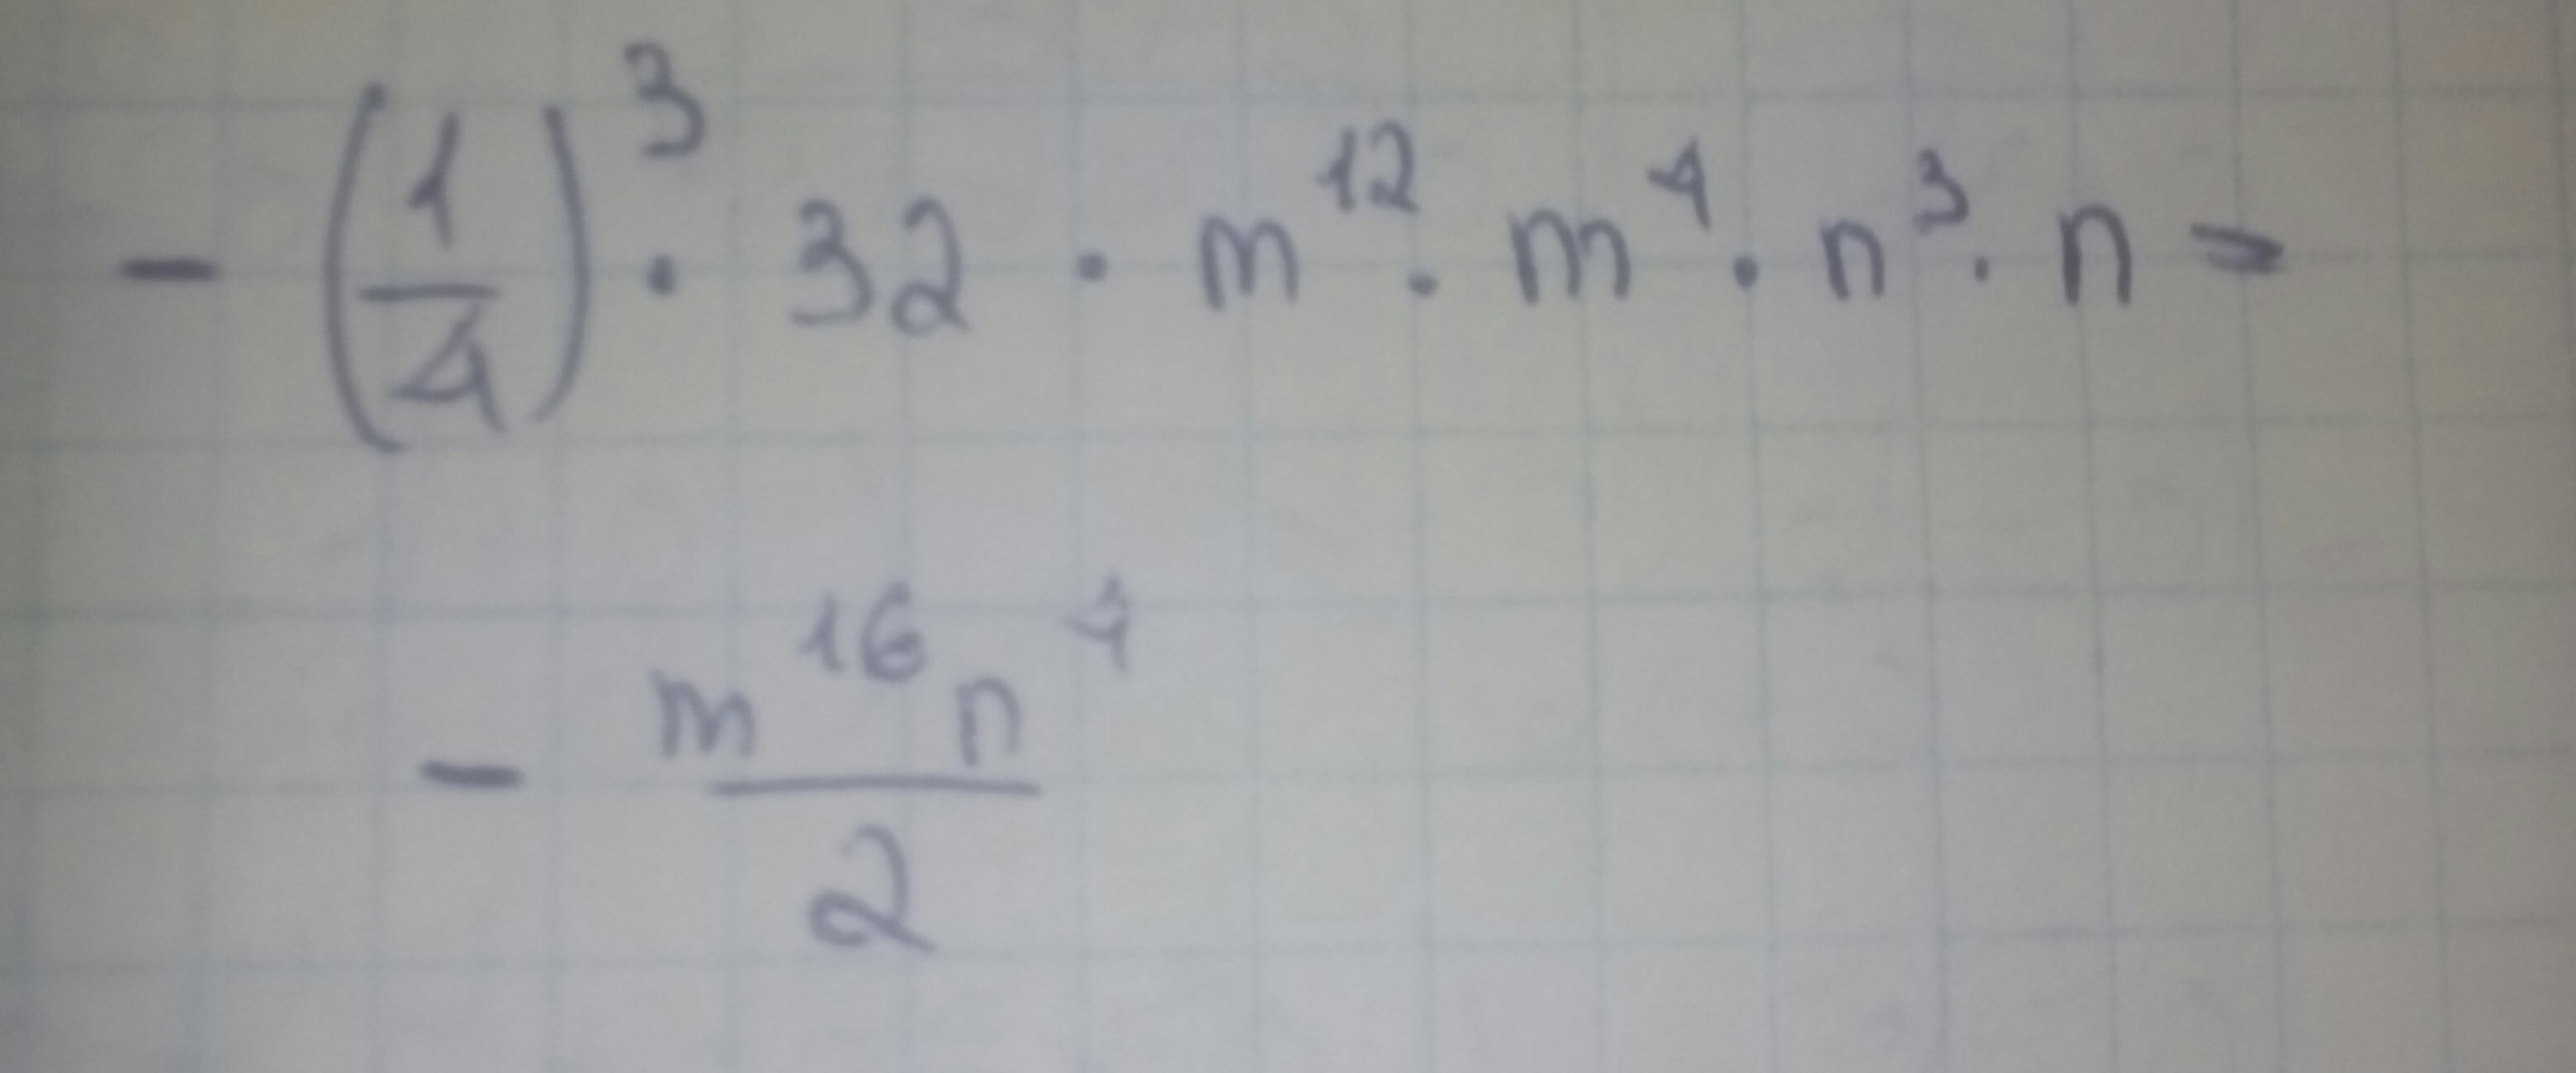 -(1/4)^3 · 32 · m^12 · m^4 · n^3 · n =
- m^16 n^4 / 2